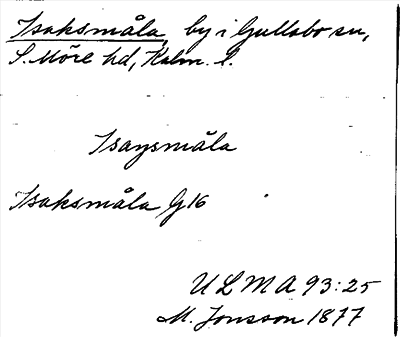 Isaksmåla, by i Gullabo sn,
S. Möre hd, Kalm. l.
Isaysmåla
Isaksmåla G16
ULMA 93:25
M. Jonsson 1877